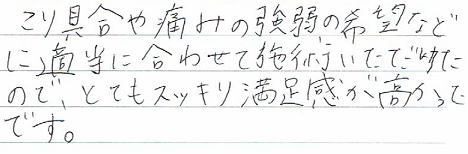 こり具合や痛みの強弱の希望など
に適当に合わせて施術いただけた
ので、とてもスッキリ満足感が高かった
です。